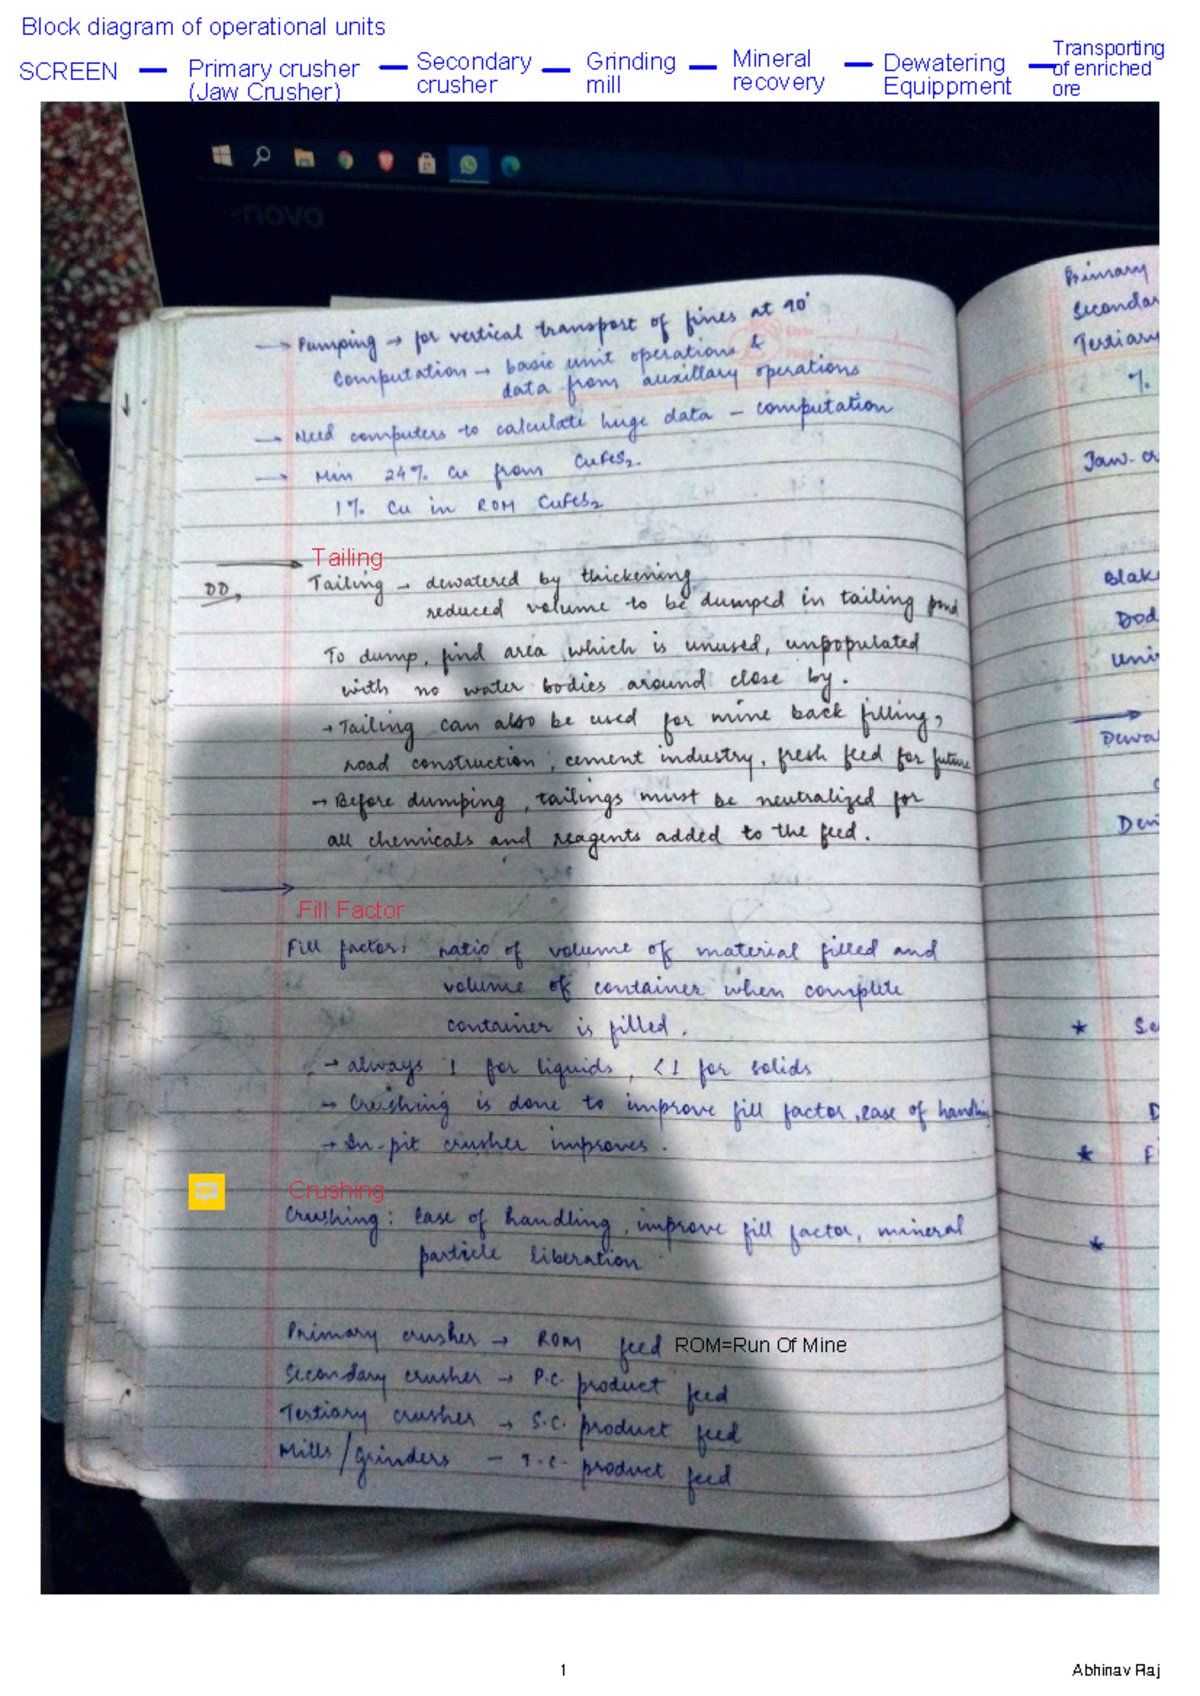 Block diagram of operational units
SCREEN — Primary crusher (Jaw Crusher) — Secondary crusher — Grinding mill — Mineral recovery — Dewatering Equippment — Transporting of enriched ore
novo
→ Pumping → for vertical transport of fines at 90°
Computation → basic unit operations &
data from auxillary operations
→ Need computers to calculate huge data - computation
→ Min 24% Cu from CuFeS2.
1% Cu in ROM CuFeS2
Tailing
DD, Tailing → dewatered by thickening
reduced volume to be dumped in tailing pond
To dump, find area which is unused, unpopulated
with no water bodies around close by.
→ Tailing can also be used for mine back filling,
road construction, cement industry, fresh feed for future
→ Before dumping, tailings must be neutralized for
all chemicals and reagents added to the feed.
Fill Factor
Fill factor: ratio of volume of material filled and
volume of container when complete
container is filled.
→ always 1 for liquids, <1 for solids
→ Crushing is done to improve fill factor, ease of handling
→ In-pit crusher improves.
Crushing
Crushing: Ease of handling, improve fill factor, mineral
particle liberation
Primary crusher → ROM feed ROM=Run Of Mine
Secondary crusher → P.C. product feed
Tertiary crusher → S.C. product feed
Mills/grinders - T.C. product feed
Primary
Secondar
Tertiary
%.
Jaw-cr
Blake
Dod
Univ
Dewa
Den
* Se
D
* F
*
1
Abhinav Raj